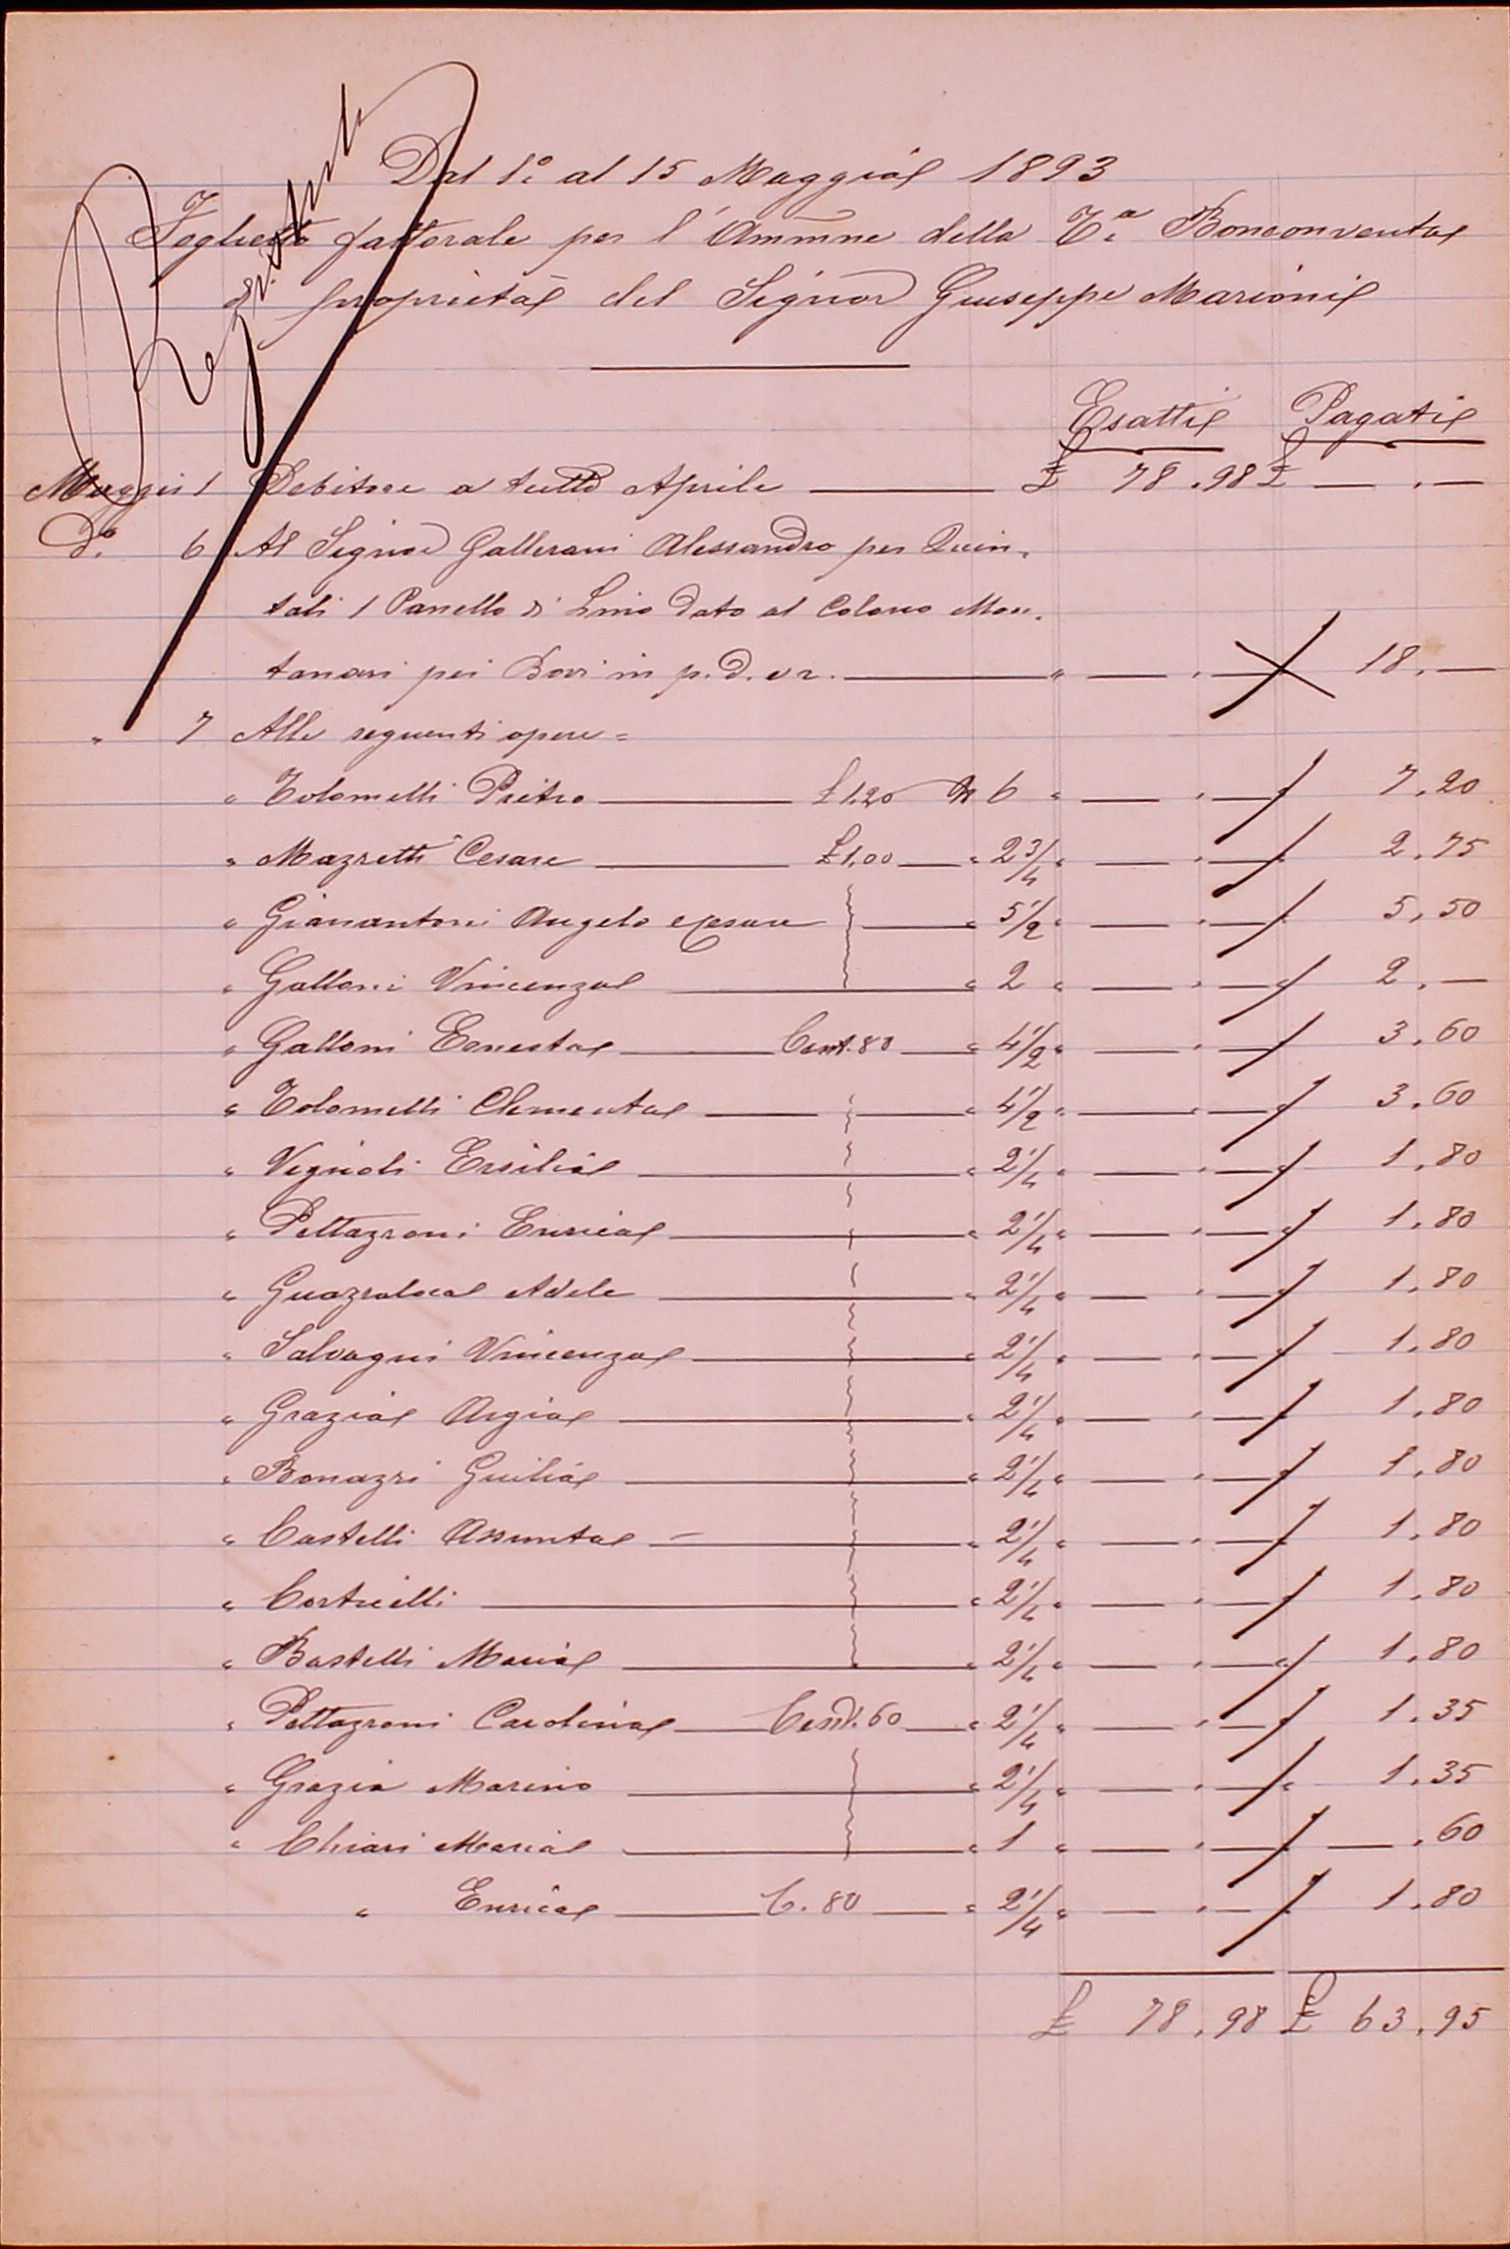 Registrato
Dal 1° al 15 Maggio 1893
Foglietto fattorale per l'Ammne della Ta Bonconvento
di proprietà del Signor Giuseppe Marioni
Esatti Pagati
Maggio 1 Debitore a tutto Aprile £ 78.98 £ — . —
Do. 6 Al Signor Gallerani Alessandro per Quin-
tali 1 Panello di Lino dato al Colono Mon-
tanari pei Bovi in p.d. ve. " — . — 18. —
" 7 Alle seguenti opere =
" Tolomelli Pietro £ 1.20 N 6 " — . — 7.20
" Mazzetti Cesare £ 1.00 " 2 3/4 " — . — 2.75
" Gianantoni Angelo e Cesare " 5 1/2 " — . — 5.50
" Galloni Vincenza " 2 " — . — 2. —
" Galloni Ernesta Cent. 80 " 4 1/2 " — . — 3.60
" Tolomelli Clementa " 4 1/2 " — . — 3.60
" Vignoli Ersilia " 2 1/4 " — . — 1.80
" Pettazzoni Enrica " 2 1/4 " — . — 1.80
" Guazzaloca Adele " 2 1/4 " — . — 1.80
" Salvagni Vincenza " 2 1/4 " — . — 1.80
" Grazia Argia " 2 1/4 " — . — 1.80
" Bonazzi Giulia " 2 1/4 " — . — 1.80
" Castelli Assunta " 2 1/4 " — . — 1.80
" Corticelli " 2 1/4 " — . — 1.80
" Bastelli Maria " 2 1/4 " — . — 1.80
" Pettazzoni Carolina Cent. 60 " 2 1/4 " — . — 1.35
" Grazia Marino " 2 1/4 " — . — " 1.35
" Chiari Maria " 1 " — . — — .60
" Enrica C. 80 " 2 1/4 " — . — 1.80
£ 78.98 £ 63.95